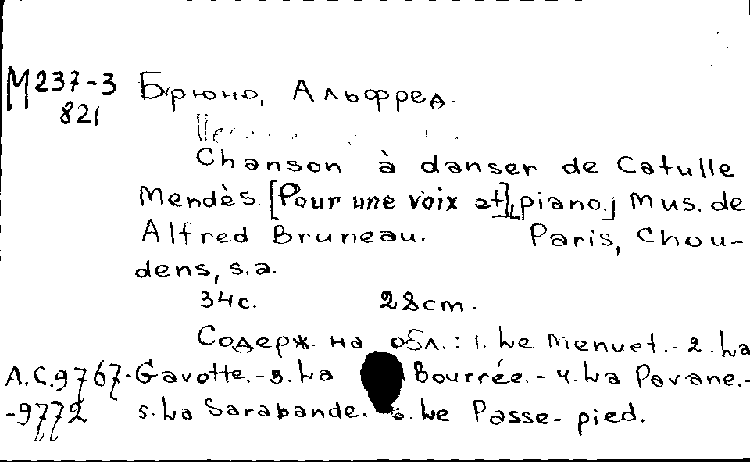 М237-3 Брюно, Альфред.
821
Chanson à danser de Catulle
Mendès. [Pour une voix et] [piano] Mus. de
Alfred Bruneau. Paris, Chou-
dens, s.a.
34с. 28cm.
Содерж. на обл.: 1. Le Menuet. - 2. La
А.С.9767- Gavotte. - 3. La Bourrée. - 4. La Pavane. -
-9772 5. La Sarabande. 6. Le Passe-pied.